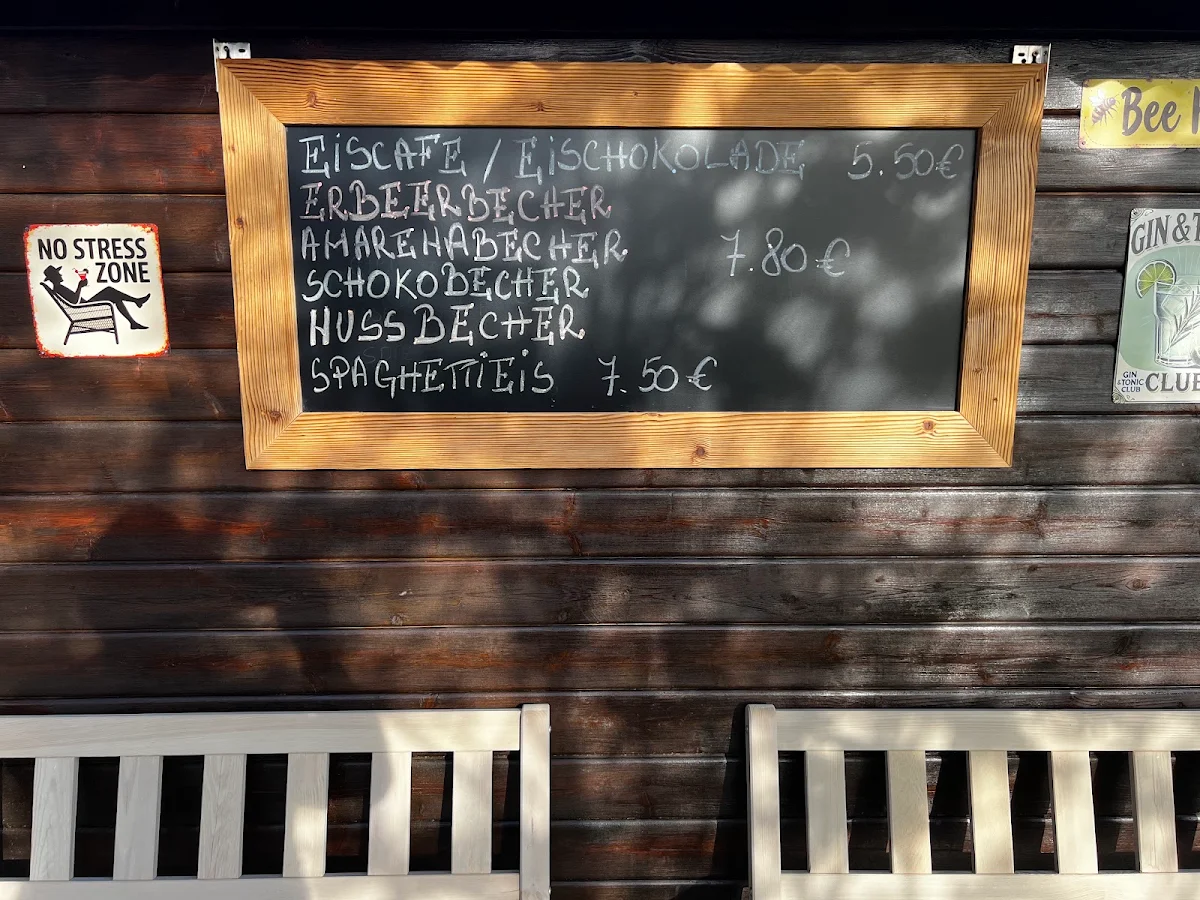 EiSCAFE / EiSCHOKOLADE 5.50€
ERBEERBECHER
AMARENABECHER 7.80€
SCHOKOBECHER
NUSSBECHER
SPAGHETTiEiS 7.50€
NO STRESS
ZONE
Bee
GIN &
GIN
& TONIC
CLUB
CLUB